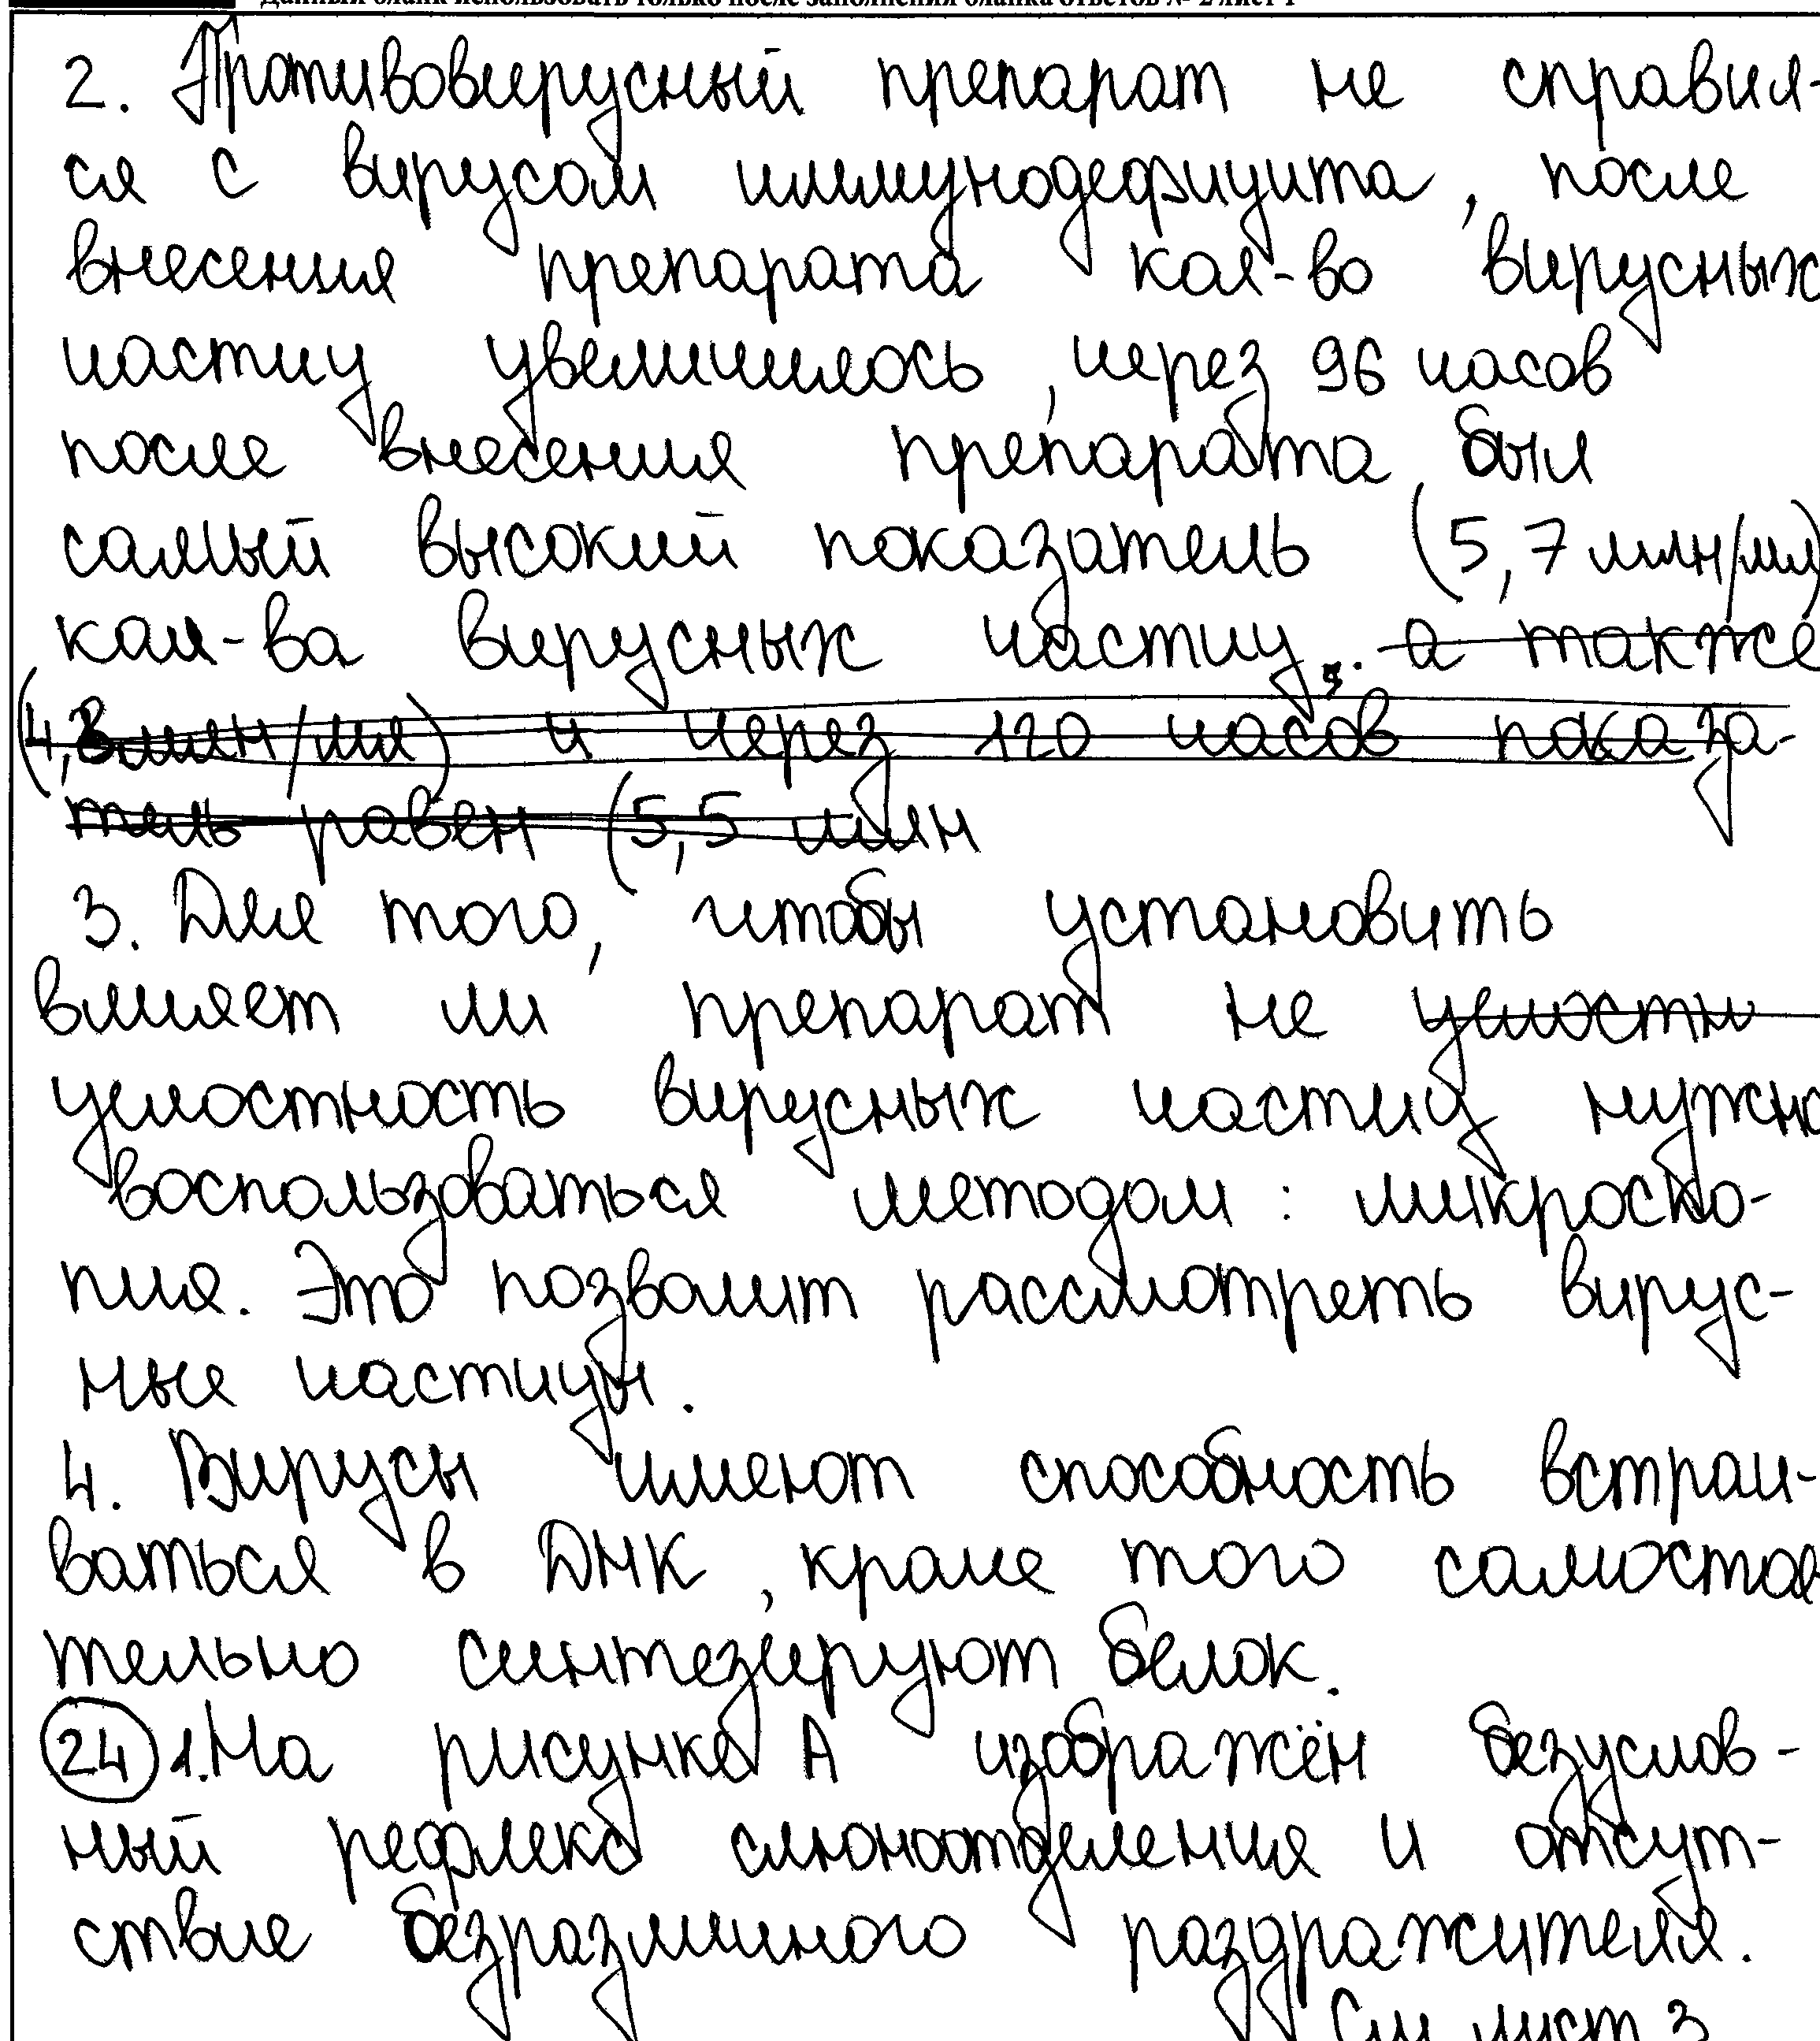 Данный бланк использовать только после заполнения бланка ответов № 2 лист 1
2. Противовирусный препарат не справил-
ся с вирусом иммунодефицита, после
внесения препарата кол-во вирусных
частиц увеличилось, через 96 часов
после внесения препарата был
самый высокий показатель (5,7 млн/мл)
кол-ва вирусных частиц. а также
(4,3 млн/мл) и через 120 часов показа-
тель равен (5,5 млн
3. Для того, чтобы установить
влияет ли препарат не целостн
целостность вирусных частиц нужно
воспользоваться методом: микроско-
пия. Это позволит рассмотреть вирус-
ные частицы.
4. Вирусы имеют способность встраи-
ваться в ДНК, кроме того самостоя
тельно синтезируют белок.
24 1. На рисунке А изображён безуслов-
ный рефлекс слюноотделения и отсут-
ствие безразличного раздражителя.
См лист 3